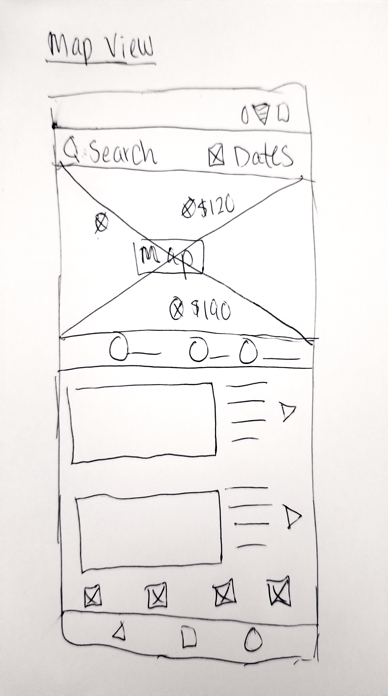 Map View
Search Dates
$120
Map
$190